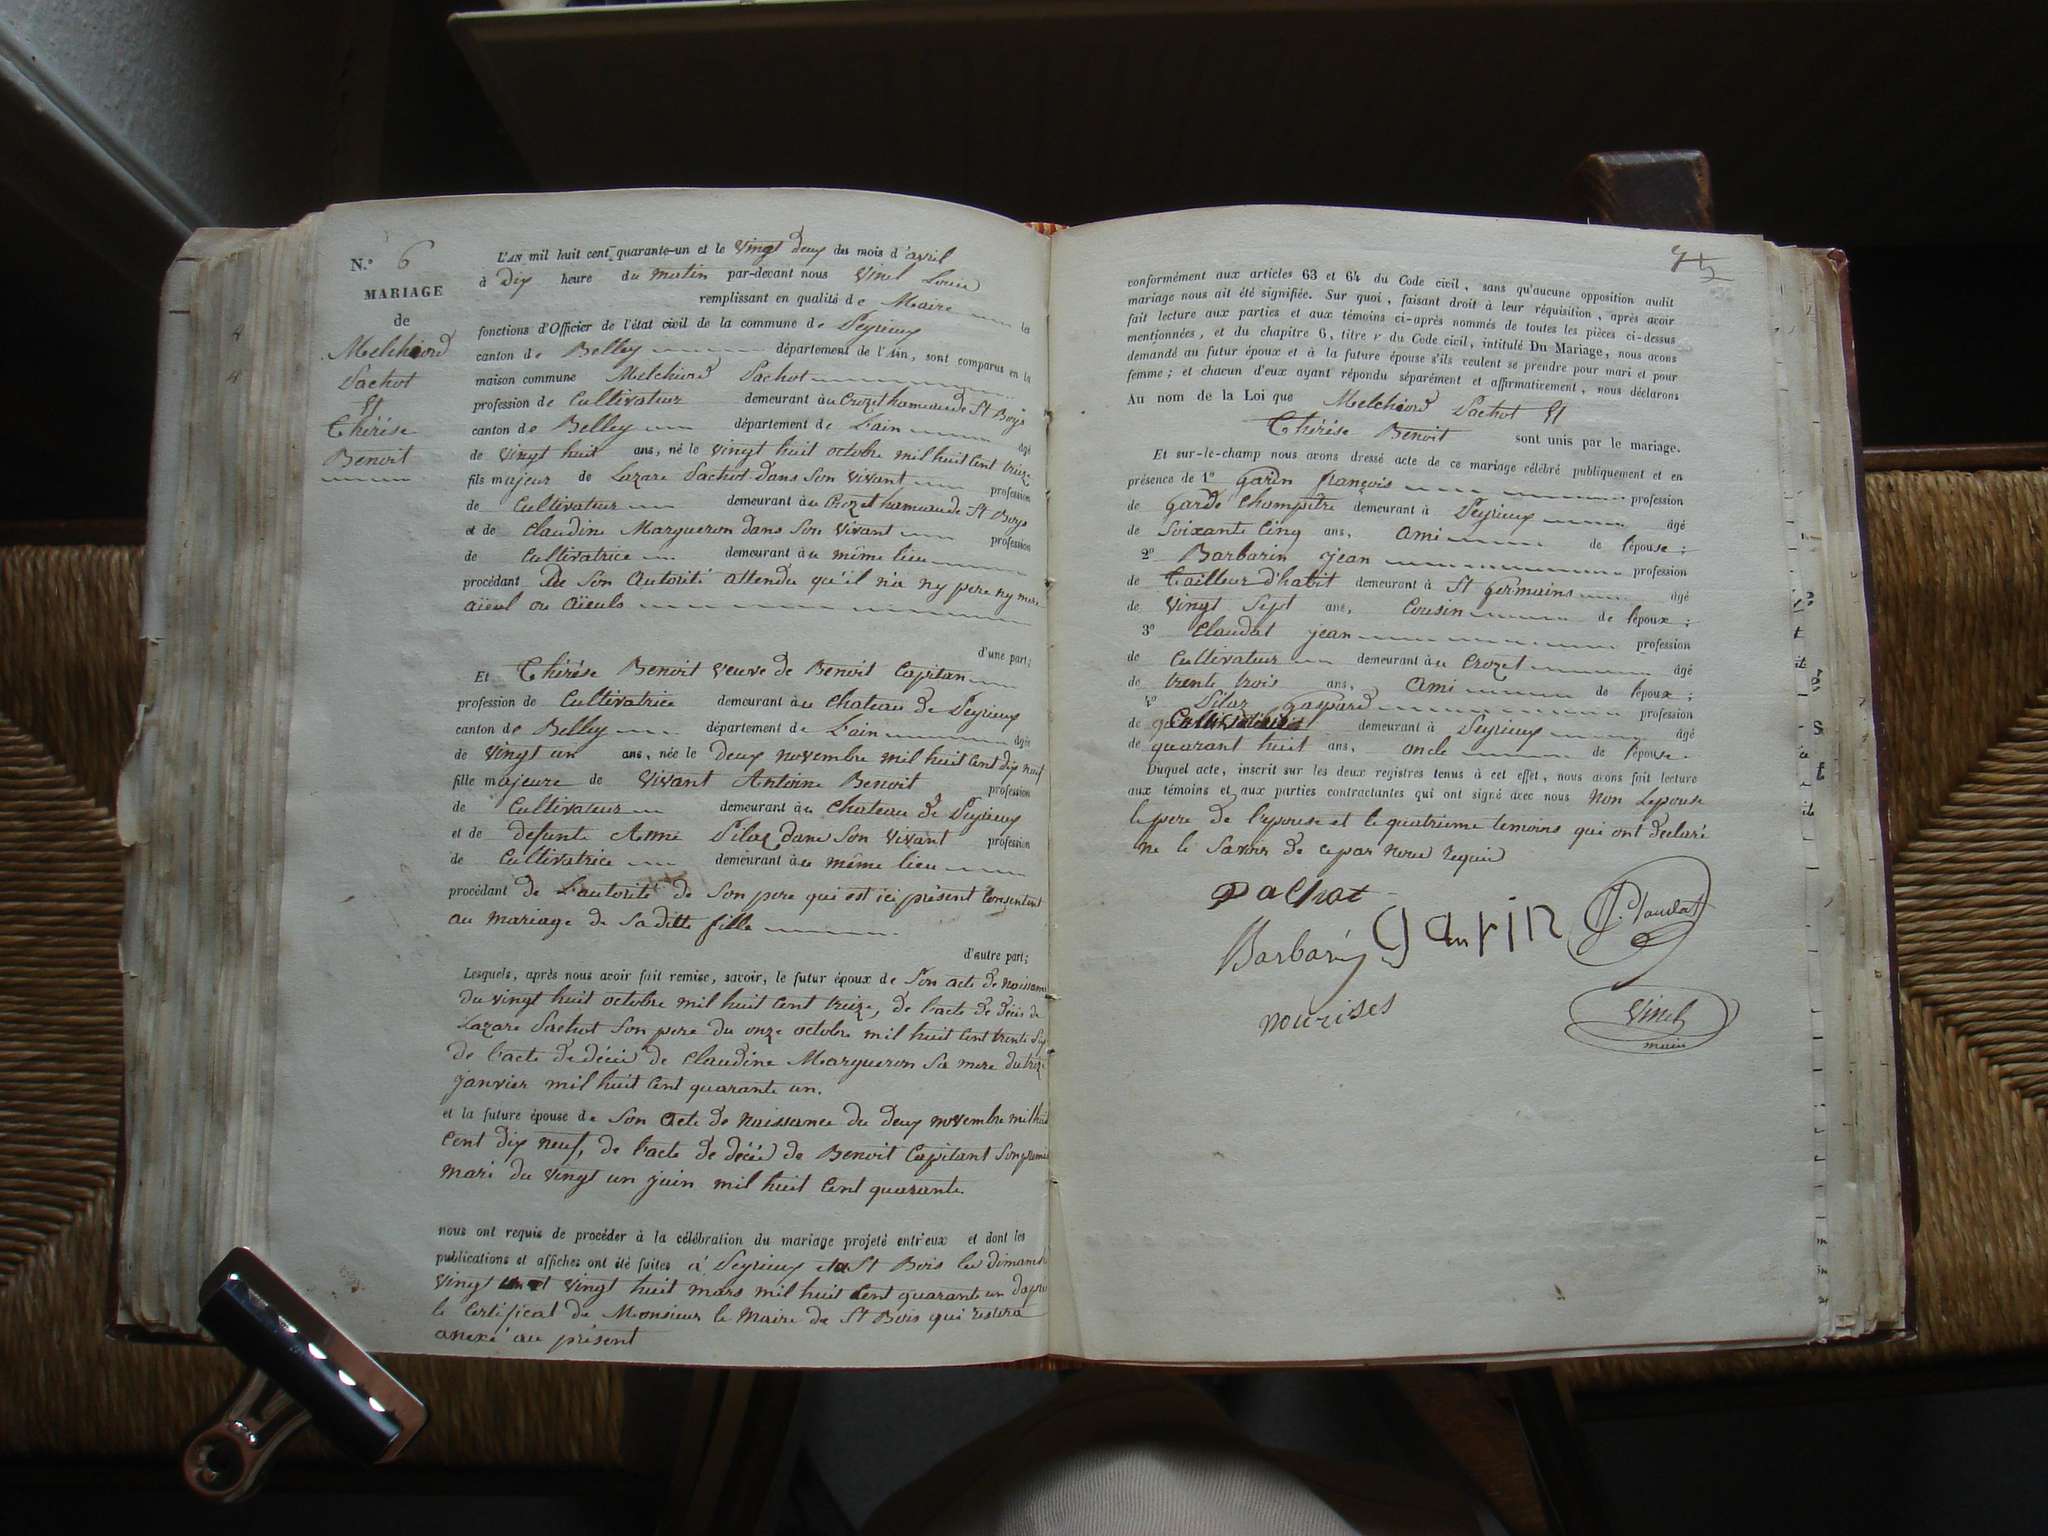 N.° 6
MARIAGE
de
Melchiord
Pachot
Et
Thérèse
Benoit
L'AN mil huit cent quarante-un et le vingt deux du mois d'avril
à Dix heure du matin par-devant nous Vinel Louis
remplissant en qualité de Maire les
fonctions d'Officier de l'état civil de la commune de Peyrieux
canton de Belley département de l'Ain, sont comparus en la
maison commune Melchiord Pachot
profession de Cultivateur demeurant àu Crozet hameau de St Boys
canton de Belley département de L'ain âgé
de vingt huit ans, né le vingt huit octobre mil huit Cent treize
fils majeur de Lazare Pachot dans son vivant profession
de Cultivateur demeurant àu Crozet hameau de St Boys
et de Claudine Margueron dans son vivant profession
de Cultivatrice demeurant àu même lieu
procédant de son autorité attendu qu'il n'a ny pere ny mere
aieul ou aieuls
d'une part;
Et Thérèse Benoit veuve de Benoit Capitan
profession de Cultivatrice demeurant àu chateau de Peyrieux
canton de Belley département de L'ain âgée
de vingt un ans, née le deux novembre mil huit Cent dix neuf
fille majeure de vivant Antoine Benoit profession
de Cultivateur demeurant àu chateau de Peyrieux
et de defunte Anne Pilaz dans son vivant profession
de Cultivatrice demeurant àu même lieu
procédant de L'autorité de son pere qui est ici présent Consentant
au mariage de sa ditte fille
d'autre part;
Lesquels, après nous avoir fait remise, savoir, le futur époux de son acte de naissance
du vingt huit octobre mil huit cent treize, de l'acte de décès de
Lazare Pachot son pere du onze octobre mil huit cent trente
de l'acte de décès de Claudine Margueron sa mere du treize
janvier mil huit Cent quarante un.
et la future épouse de son acte de naissance du deux novembre mil huit
Cent dix neuf, de l'acte de décès de Benoit Capitant son premier
mari du vingt un juin mil huit Cent quarante.
nous ont requis de procéder à la célébration du mariage projeté entr'eux et dont les
publications et affiches ont été faites à Peyrieux et à St Bois les dimanche
vingt un et vingt huit mars mil huit Cent quarante un dapres
le Certificat de Monsieur le Maire de St Bois qui restera
anexé au présent
conformément aux articles 63 et 64 du Code civil, sans qu'aucune opposition audit
mariage nous ait été signifiée. Sur quoi, faisant droit à leur réquisition, après avoir
fait lecture aux parties et aux témoins ci-après nommés de toutes les pièces ci-dessus
mentionnées, et du chapitre 6, titre v du Code civil, intitulé Du Mariage, nous avons
demandé au futur époux et à la future épouse s'ils veulent se prendre pour mari et pour
femme; et chacun d'eux ayant répondu séparément et affirmativement, nous déclarons
Au nom de la Loi que Melchiord Pachot Et
Thérèse Benoit sont unis par le mariage.
Et sur-le-champ nous avons dressé acte de ce mariage célébré publiquement et en
présence de 1° Garin françois profession
de garde Champêtre demeurant à Peyrieux âgé
de Soixante Cinq ans, ami de l'épouse;
2° Barbarin jean profession
de Tailleur d'habit demeurant à St germains âgé
de vingt Sept ans, Cousin de l'époux;
3° Claudat jean profession
de Cultivateur demeurant àu Crozet âgé
de trente trois ans, ami de l'époux;
4° Pilaz Gaspard profession
de demeurant à Peyrieux âgé
de quarant huit ans, oncle de l'épouse.
Duquel acte, inscrit sur les deux registres tenus à cet effet, nous avons fait lecture
aux témoins et aux parties contractantes qui ont signé avec nous Non Lepouse
le pere de l'epouse et le quatrieme temoins qui ont declaré
ne le savoir de ce par nous requis
Pachot
Garin
Claudat
Barbarin
Vinel
maire